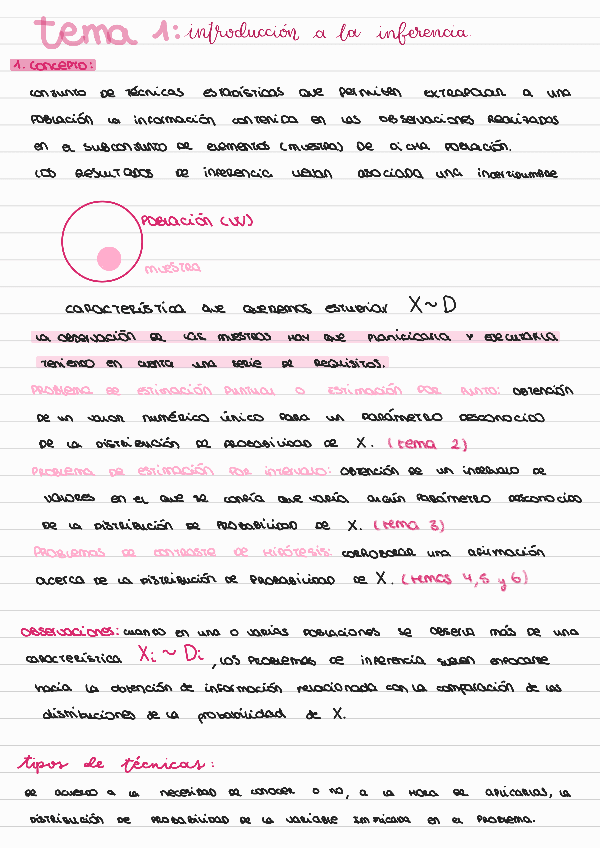 tema 1: introducción a la inferencia
1. Concepto:
conjunto de técnicas estadísticas que permiten extrapolar a una
población la información contenida en las observaciones realizadas
en el subconjunto de elementos (muestra) de dicha población.
Los resultados de inferencia llevan asociada una incertidumbre
Población (UV)
muestra
característica que queremos estudiar X~D
la observación de las muestras hay que planificarla y ejecutarla
teniendo en cuenta una serie de requisitos.
Problema de estimación puntual o estimación por punto: obtención
de un valor numérico único para un parámetro desconocido
de la distribución de probabilidad de X. (tema 2)
Problema de estimación por intervalo: obtención de un intervalo de
valores en el que se confía que varía algún parámetro desconocido
de la distribución de probabilidad de X. (tema 3)
Problemas de contraste de hipótesis: corroborar una afirmación
acerca de la distribución de probabilidad de X. (temas 4, 5 y 6)
Observaciones: cuando en una o varias poblaciones se observa más de una
característica Xi ~ Di, los problemas de inferencia suelen enfocarse
hacia la obtención de información relacionada con la comparación de las
distribuciones de la probabilidad de X.
tipos de técnicas:
de acuerdo a la necesidad de conocer o no, a la hora de aplicarlas, la
distribución de probabilidad de la variable implicada en el problema.